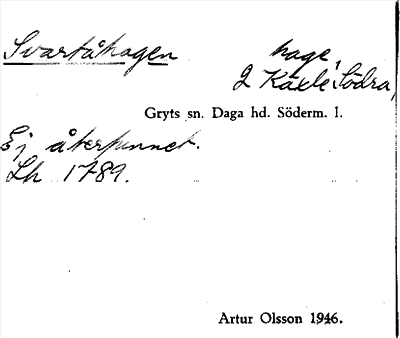 Svartåhagen hage,
2 Kaxle Södra,
Gryts sn. Daga hd. Söderm. l.
Ej återfunnet.
Lh 1789.
Artur Olsson 1946.